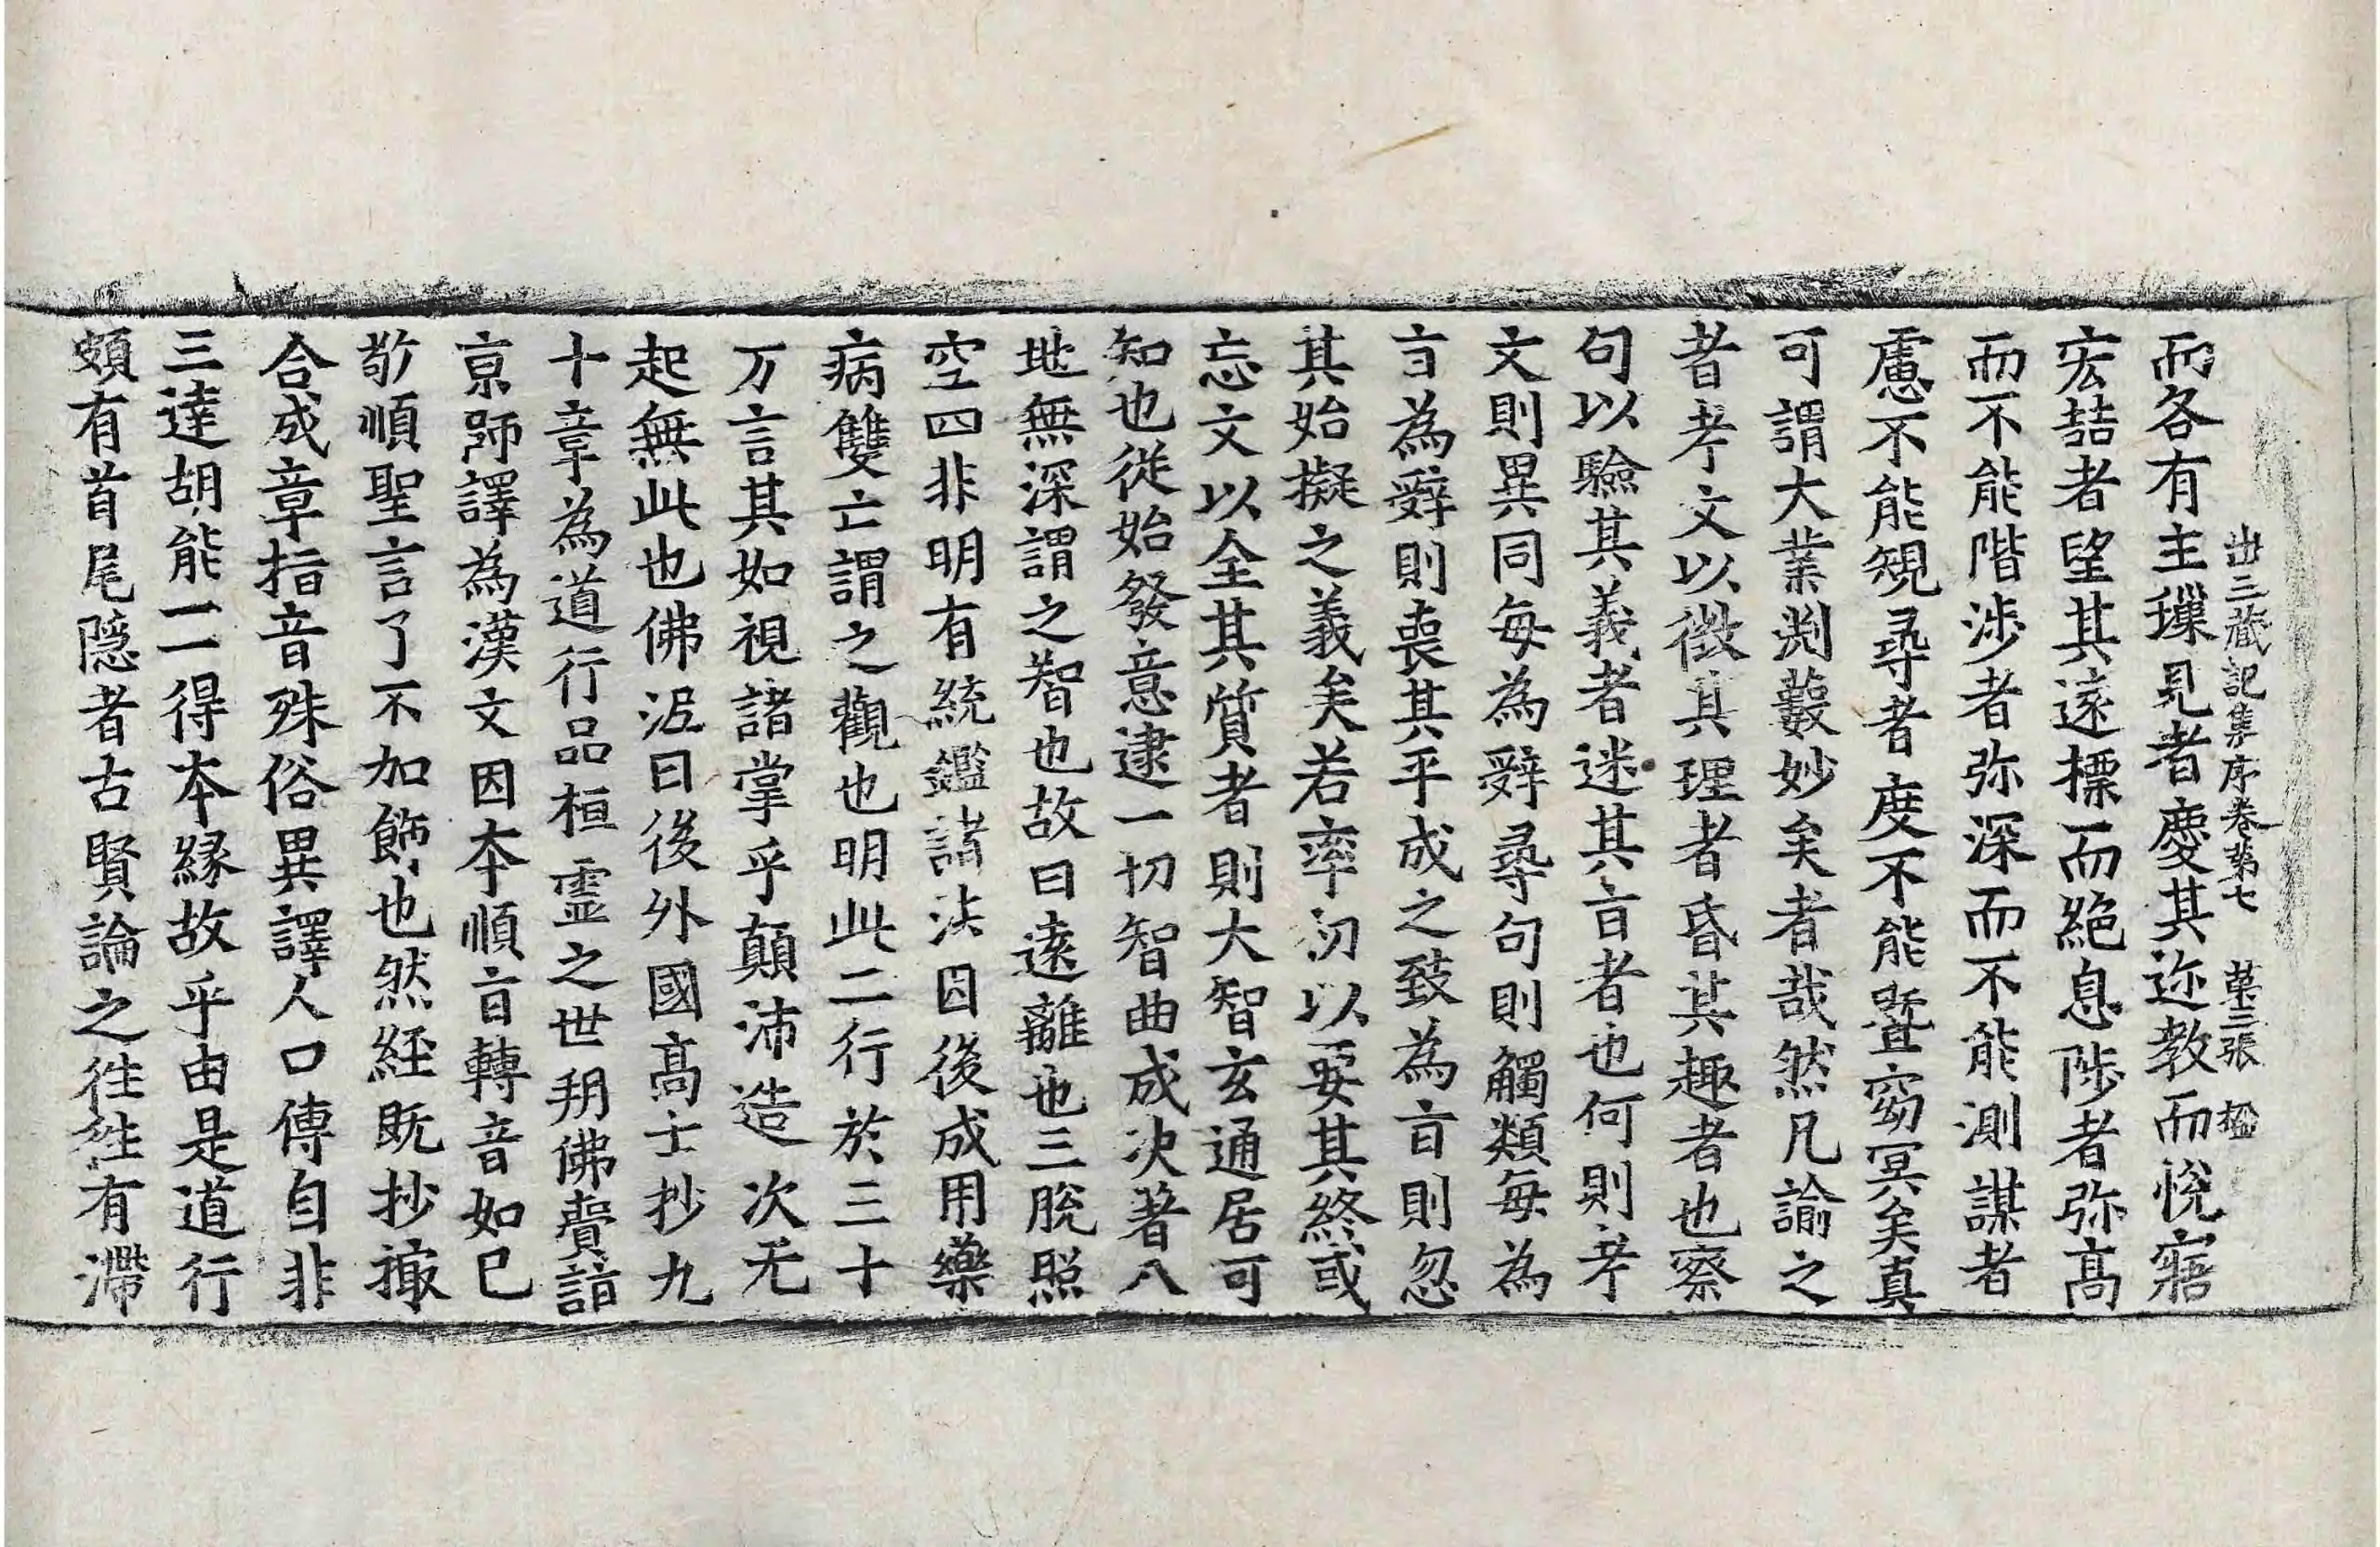 出三藏記集序卷第七 苐三張 楹
而各有主璅見者慶其迩教而悅寤
宏喆者望其遠摽而絕息陟者弥高
而不能階涉者弥深而不能測謀者
慮不能規尋者度不能暨窈冥矣真
可謂大業渕藪妙矣者哉然凡諭之
者考文以徵其理者昏其趣者也察
句以驗其義者迷其㫖者也何則考
文則異同每為辤尋句則觸類每為
㫖為辤則喪其平成之致為㫖則忽
其始擬之義矣若率初以要其終或
忘文以全其質者則大智玄通居可
知也從始發意逮一切智曲成决著八
地無深謂之智也故曰遠離也三脫照
空四非明有統鑑諸法因後成用藥
病雙亡謂之觀也明此二行於三十
万言其如視諸掌乎顛沛造次无
起無此也佛泥曰後外國高士抄九
十章為道行品桓靈之世朔佛賷詣
京師譯為漢文因本順㫖轉音如已
敬順聖言了不加飾也然経既抄撮
合成章指音殊俗異譯人口傳自非
三達胡能一一得本緣故乎由是道行
頗有首尾隱者古賢論之往往有滯